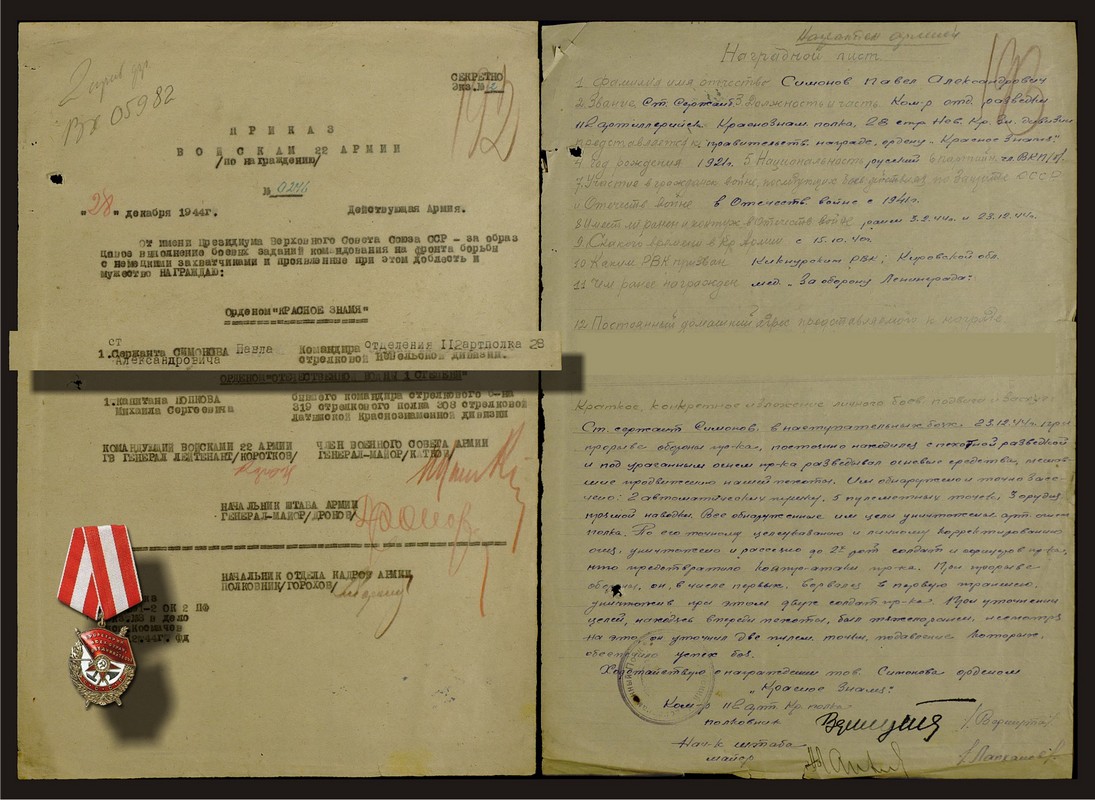 Вх 05982
СЕКРЕТНО
Экз.№
192
П Р И К А З
В О Й С К А М 22 А Р М И И
/по награждению/
№ 0246
"28" декабря 1944г. Действующая Армия.
От имени Президиума Верховного Совета Союза ССР - за образ
цовое выполнение боевых заданий командования на фронте борьбы
с немецкими захватчиками и проявленные при этом доблесть и
мужество НАГРАЖДАЮ:
Орденом "КРАСНОЕ ЗНАМЯ"
ст
1.Сержанта СИМОНОВА Павла Командира отделения 112артполка 28
Александровича стрелковой Невельской дивизии.
ОРДЕНОМ "ОТЕЧЕСТВЕННОЙ ВОЙНЫ 1 СТЕПЕНИ"
1.Капитана ПОПКОВА командира стрелкового б-на
Михаила Сергеевича 319 стрелкового полка 308 стрелковой
Латышской Краснознаменной дивизии
КОМАНДУЮЩИЙ ВОЙСКАМИ 22 АРМИИ ЧЛЕН ВОЕННОГО СОВЕТА АРМИИ
ГВ ГЕНЕРАЛ ЛЕЙТЕНАНТ/КОРОТКОВ/ ГЕНЕРАЛ-МАЙОР/КАТКОВ/
НАЧАЛЬНИК ШТАБА АРМИИ
ГЕНЕРАЛ-МАЙОР/ДРОНОВ/
НАЧАЛЬНИК ОТДЕЛА КАДРОВ АРМИИ
ПОЛКОВНИК/ГОРОХОВ/
-2 ОК 2 ПФ
в дело
44г. ФД
Наградной лист
193
1 Фамилия имя отчество Симонов Павел Александрович
2 Звание Ст. Сержант 3 Должность и часть Ком-р отд. разведки
112 артиллерийск. Краснознам. полка, 28 стр. Нев. Кр. Зн. дивизии
представляется к правительств. награде, ордену "Красное Знамя"
4 Год рождения 1921г. 5 Национальность русский 6 партийн. чл. ВКП/б/
7 Участие в граждан. войне, последующих боев. действиях по защите СССР
и Отечеств войне в Отечеств войне с 1941г.
8 Имеет ли ранен и контуж в Отечеств войне ранен 3.2.44г. и 23.12.44г.
9 С какого времени в Кр Армии с 15.10.40г.
10 Каким РВК призван Кикнурским РВК; Кировской обл.
11 Чем ранее награжден мед. "За оборону Ленинграда".
12 Постоянный домашний адрес представляемого к награде
Краткое, конкретное изложение личного боев подвига и заслуг
Ст. сержант Симонов, в наступательных боях. 23.12.44г. при
прорыве обороны пр-ка, постоянно находился с пехотной разведкой
и под ураганным огнем пр-ка разведывал огневые средства, мешав-
шие продвижению нашей пехоты. Им обнаружено и точно засе-
чено: 2 автоматических пушки, 5 пулеметных точек, 3 орудия
прямой наводки. Все обнаруженные им цели уничтожены арт. огнем
полка. По его точному целеуказанию и личному корректированию
огня, уничтожено и рассеяно до 2х рот солдат и офицеров пр-ка,
что предотвратило контр-атаки пр-ка. При прорыве
обороны, он, в числе первых, ворвался в первую траншею,
уничтожив при этом двух солдат пр-ка. При уточнении
целей, находясь впереди пехоты, был тяжело ранен, несмотря
на это, он уточнил две пулем. точки, подавление которых
обеспечило успех боя.
Ходатайствую о награждении тов. Симонова орденом
"Красное Знамя".
Ком-р 112 арт. Кр полка
полковник
Нач-к штаба
майор